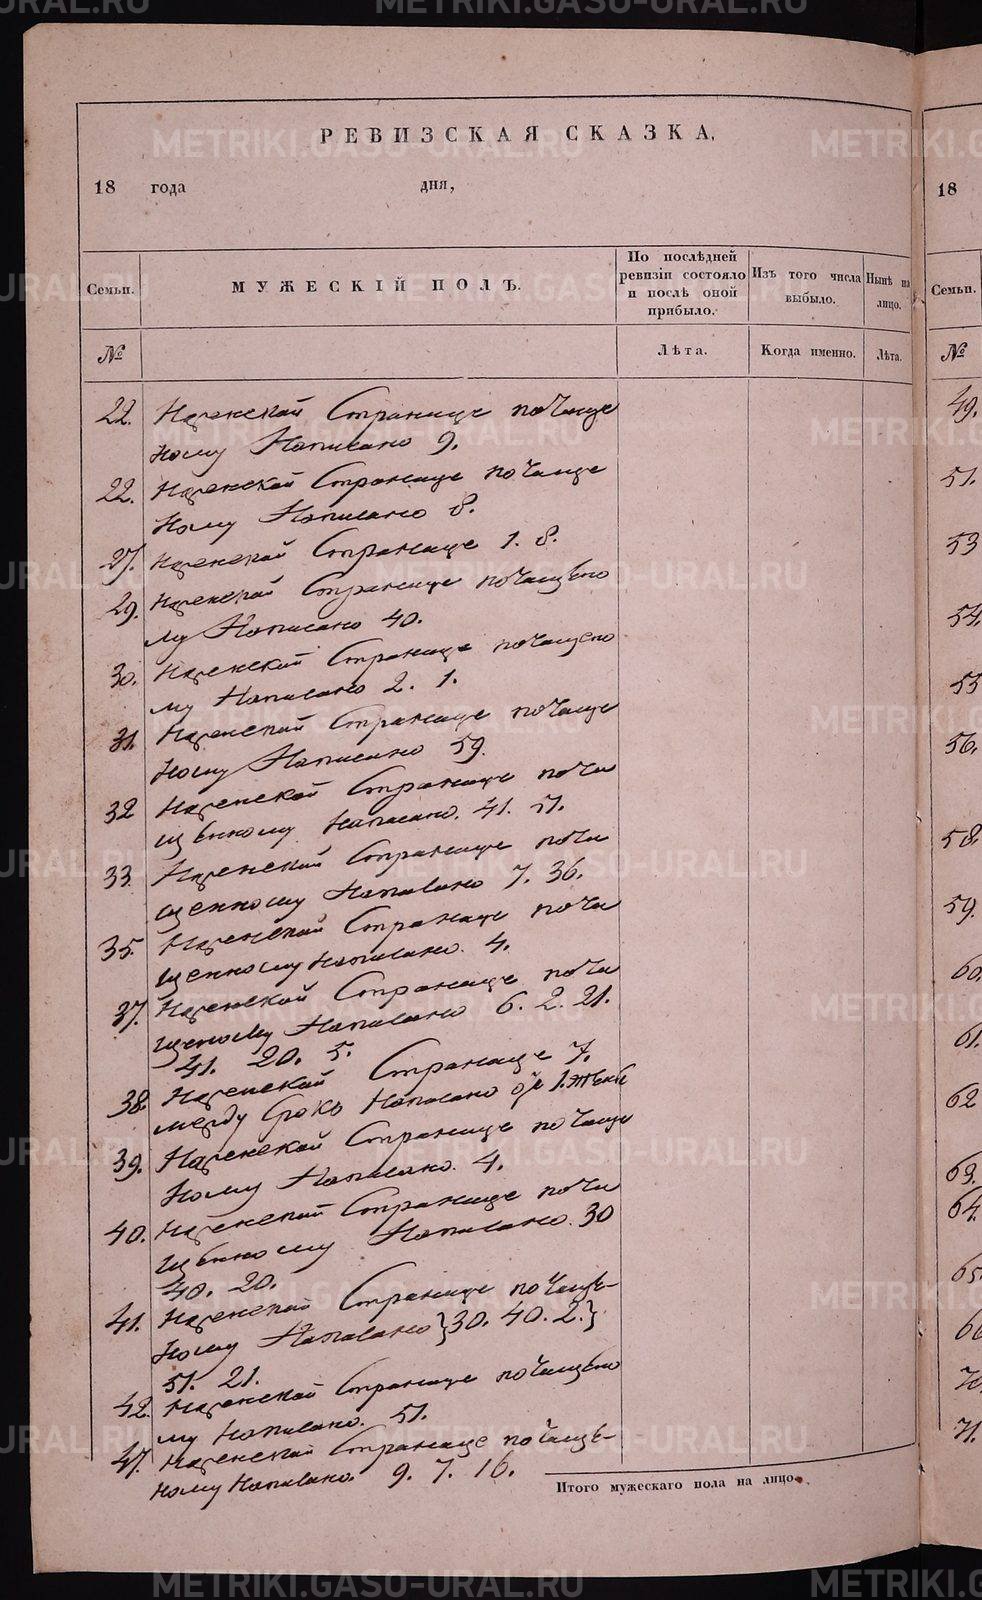 METRIKI.GASO-URAL.RU
РЕВИЗСКАЯ СКАЗКА,
18 года дня,
18
Семьи.
МУЖЕСКІЙ ПОЛЪ.
По послѣдней ревизіи состояло и послѣ оной прибыло.
Изъ того числа выбыло.
Нынѣ на лицо.
Семьи.
№
Лѣта.
Когда именно.
Лѣта.
№
22. На женской Странице почище
ному Написано 9.
22. На женской Странице почище
ному Написано 8.
27. На женской Странице 1. 8.
29. На женской Странице почищено
му Написано 40.
30. На женской Странице почищено
му Написано 2. 1.
31. На женской Странице почище
ному Написано 59.
32 На женской Странице почи
щѣнному Написано. 41. 51.
33. На женской Странице почи
щенному Написано 7. 36.
35. На женской Странице почи
щенному написано. 4.
37. На женской Странице почи
щеному Написано 6. 2. 21.
41. 20. 5.
38. На женской Странице 7.
между строкъ Написано 1.
39. На женской Странице почище
ному Написано. 4.
40. На женской Странице почи
щѣнному Написано. 30
40. 20.
41. На женской Странице почищѣ-
ному Написано }30. 40. 2.}
51. 21.
42. На женской Странице почищѣно
му Написано. 51.
47. На женской Странице почищѣ-
ному Написано. 9. 7. 16.
Итого мужескаго пола на лицо.
49.
51.
53
54.
55
56.
58.
59.
60.
61.
62
63.
64.
65.
71.